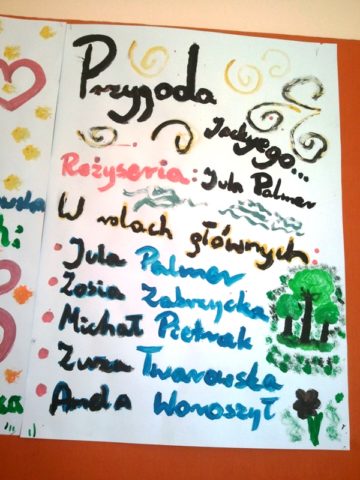 Przygoda
Jadwyego...
Reżyseria: Jula Palmer
W rolach głównych
Jula Palmer
Zosia Zabrzycka
Michał Pietrak
Zuza Twarowska
Amela Wonoszył